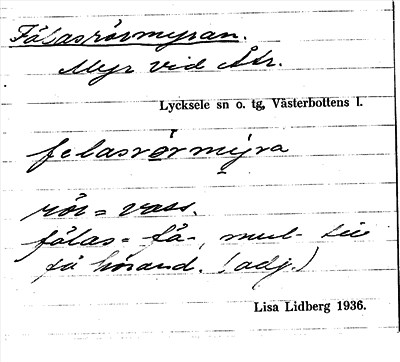 Fölasrörmyran.
Myr vid Åtr.
Lycksele sn o. tg, Västerbottens l.
felasrörmyra
rör = vass.
fölas = få-, mul-
få hörand. (adj.)
Lisa Lidberg 1936.